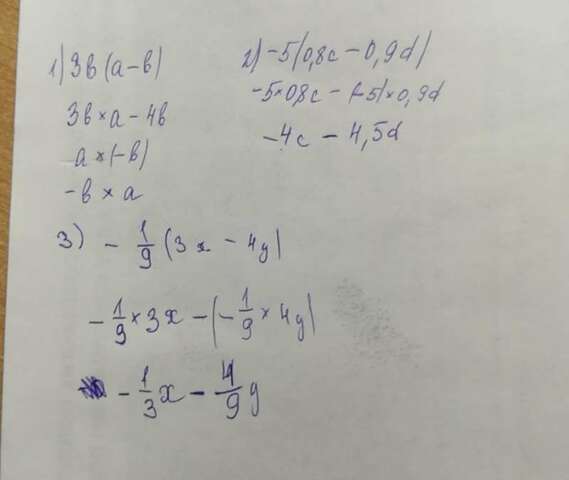 1) 3b (a - b)
3b × a - 4b
a × (-b)
-b × a
2) -5(0,8c - 0,9d)
-5×0,8c - (-5)×0,9d
-4c - 4,5d
3) - 1/9 (3x - 4y)
- 1/9 × 3x - (- 1/9 × 4y)
- 1/3 x - 4/9 y